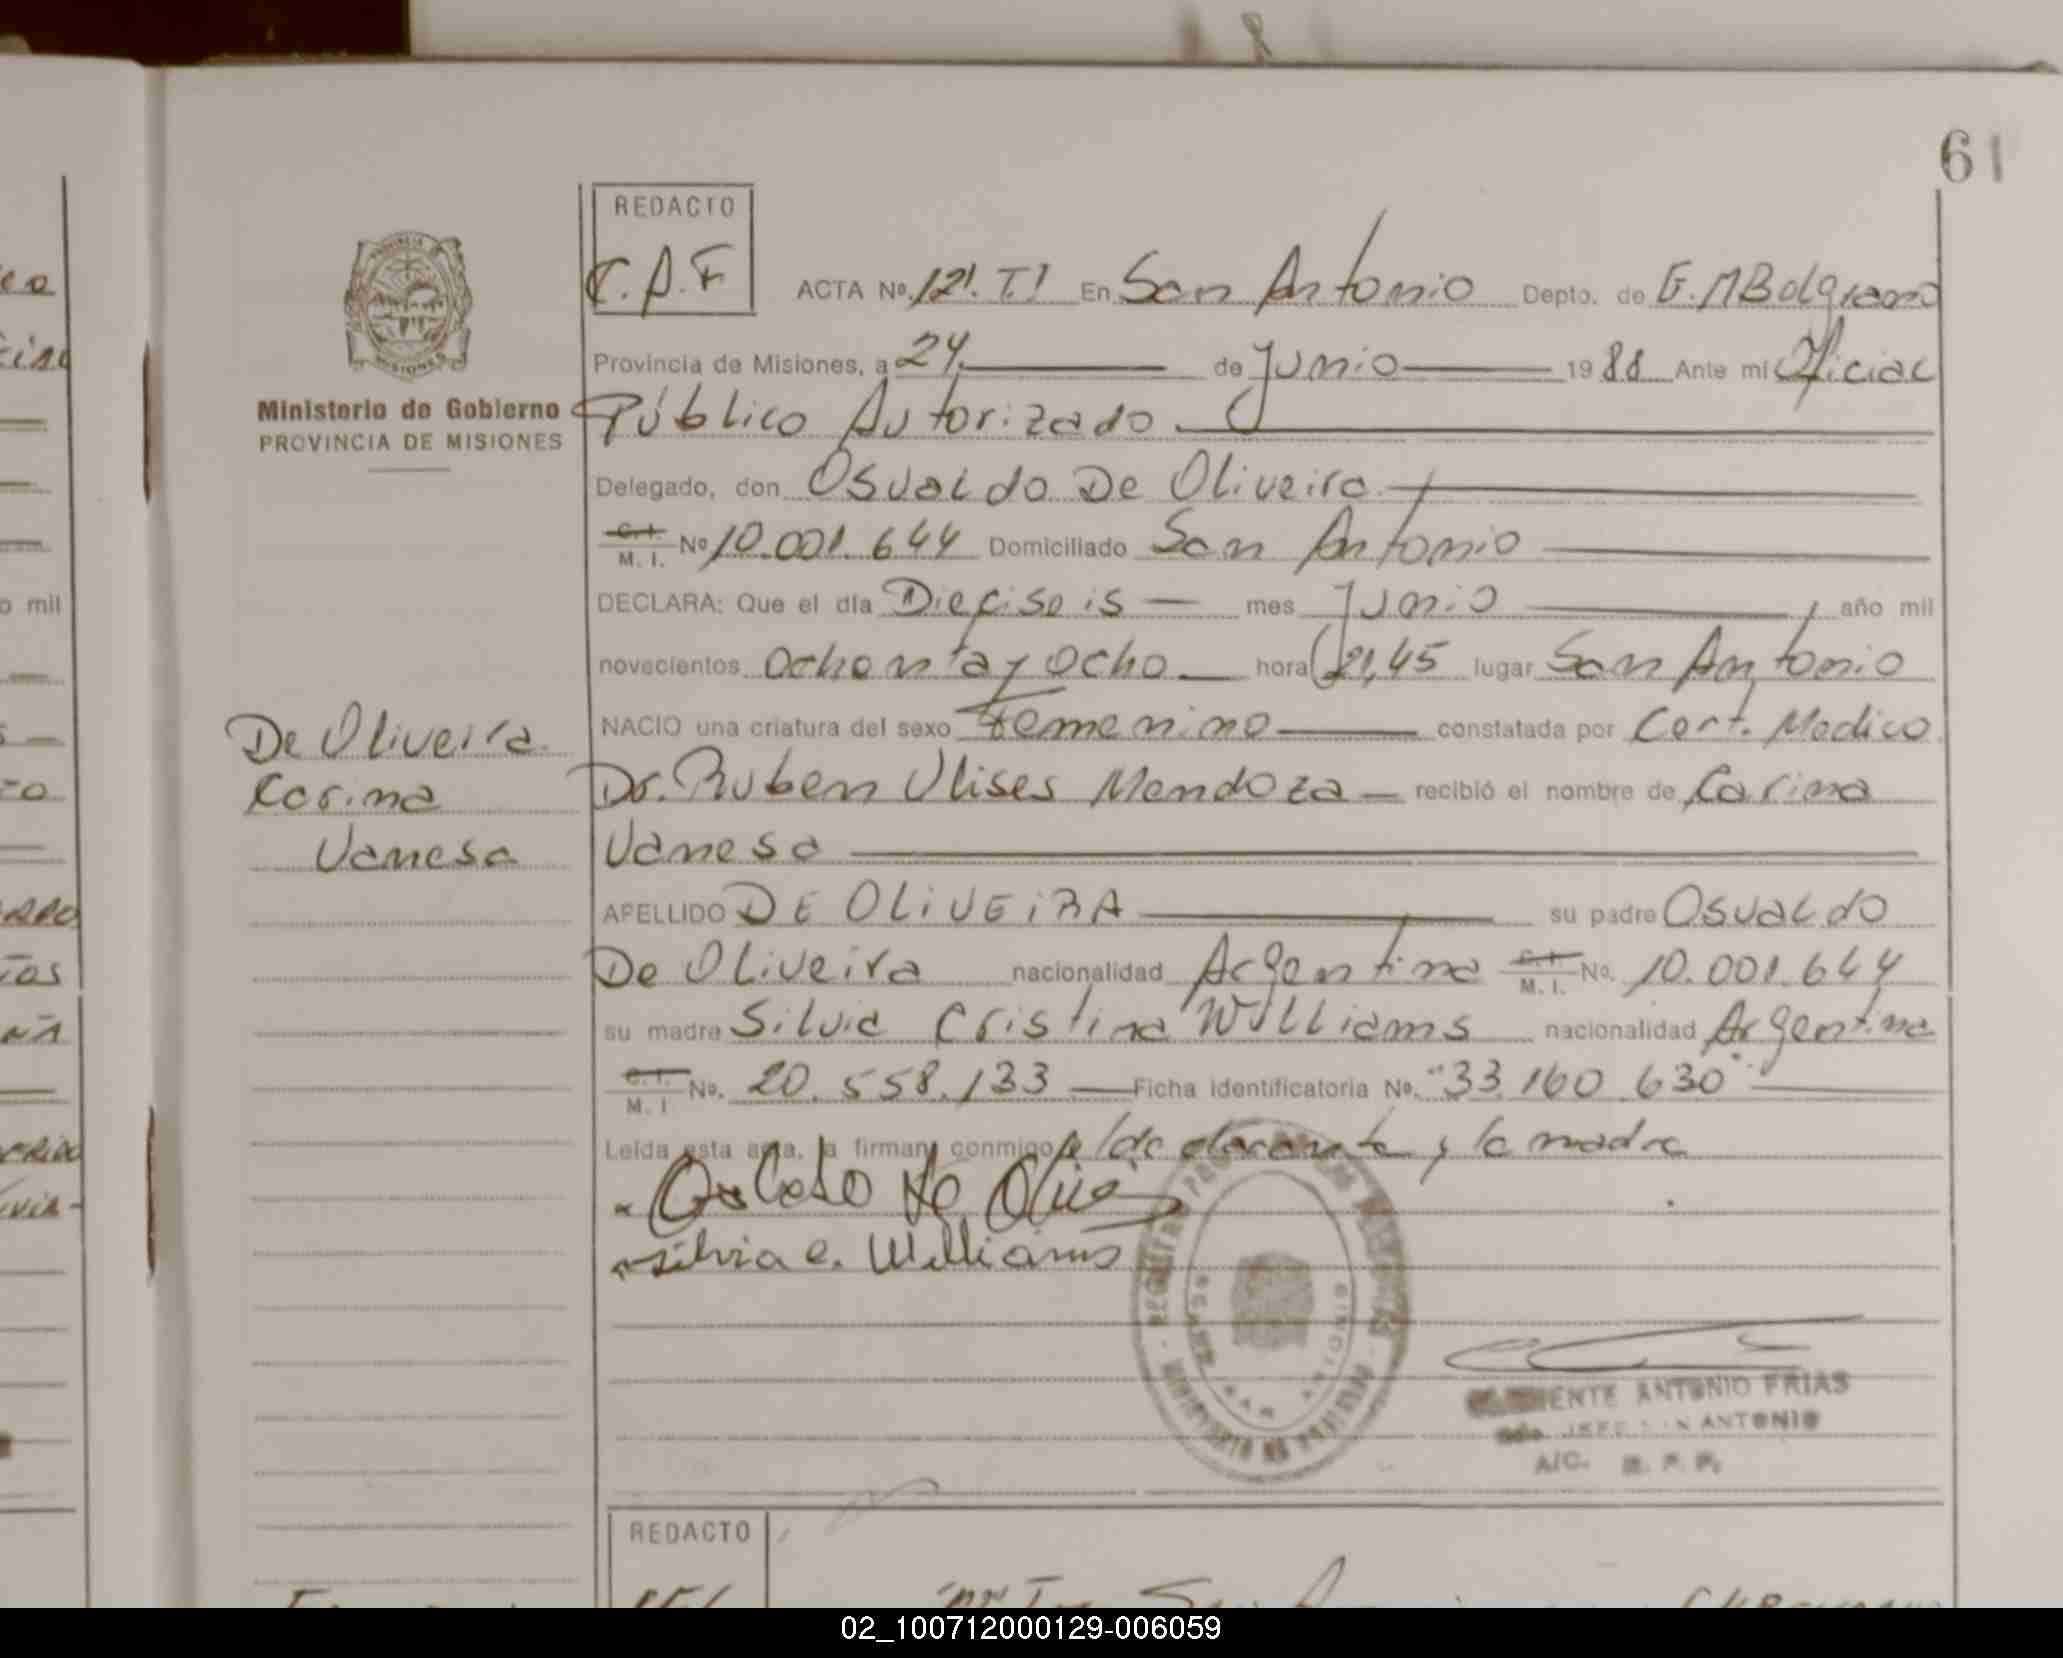 61
REDACTO
C.A.F
ACTA Nº. 121. T.I En San Antonio Depto. de G. M Belgrano
Provincia de Misiones, a 24 de Junio 1988 Ante mi Oficial
Público Autorizado.
Delegado, don Osvaldo De Oliveira.
C.I. M. I. Nº 10.001.644 Domiciliado San Antonio
DECLARA: Que el día Dieciseis mes Junio año mil
novecientos ochenta y ocho hora 21,45 lugar San Antonio
NACIO una criatura del sexo Femenino constatada por Cert. Medico
Dr. Ruben Ulises Mendoza recibió el nombre de Carina
Vanesa
APELLIDO DE OLIVEIRA su padre Osvaldo
De Oliveira nacionalidad Argentina C.I. M. I. No. 10.001.644
su madre Silvia Cristina Williams nacionalidad Argentina
C.I. M. I No. 20.558.133 Ficha identificatoria No. "33.160.630"
Leída esta acta, la firman conmigo la declarante y la madre
Silvia C. Williams
ANTONIO FRIAS
ANTONIO
A/C.
PROVINCIA DE
MISIONES
Ministerio de Gobierno
PROVINCIA DE MISIONES
De Oliveira.
Carina
Vanesa
REDACTO
02_100712000129-006059